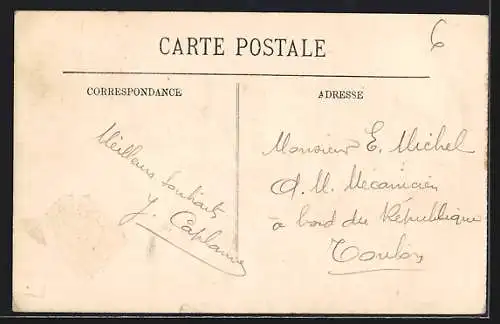 6
CARTE POSTALE
CORRESPONDANCE
ADRESSE
Meilleurs Souhaits
Y. Caplanne
Monsieur E. Michel
Q. M. Mécanicien
à bord du République
Toulon